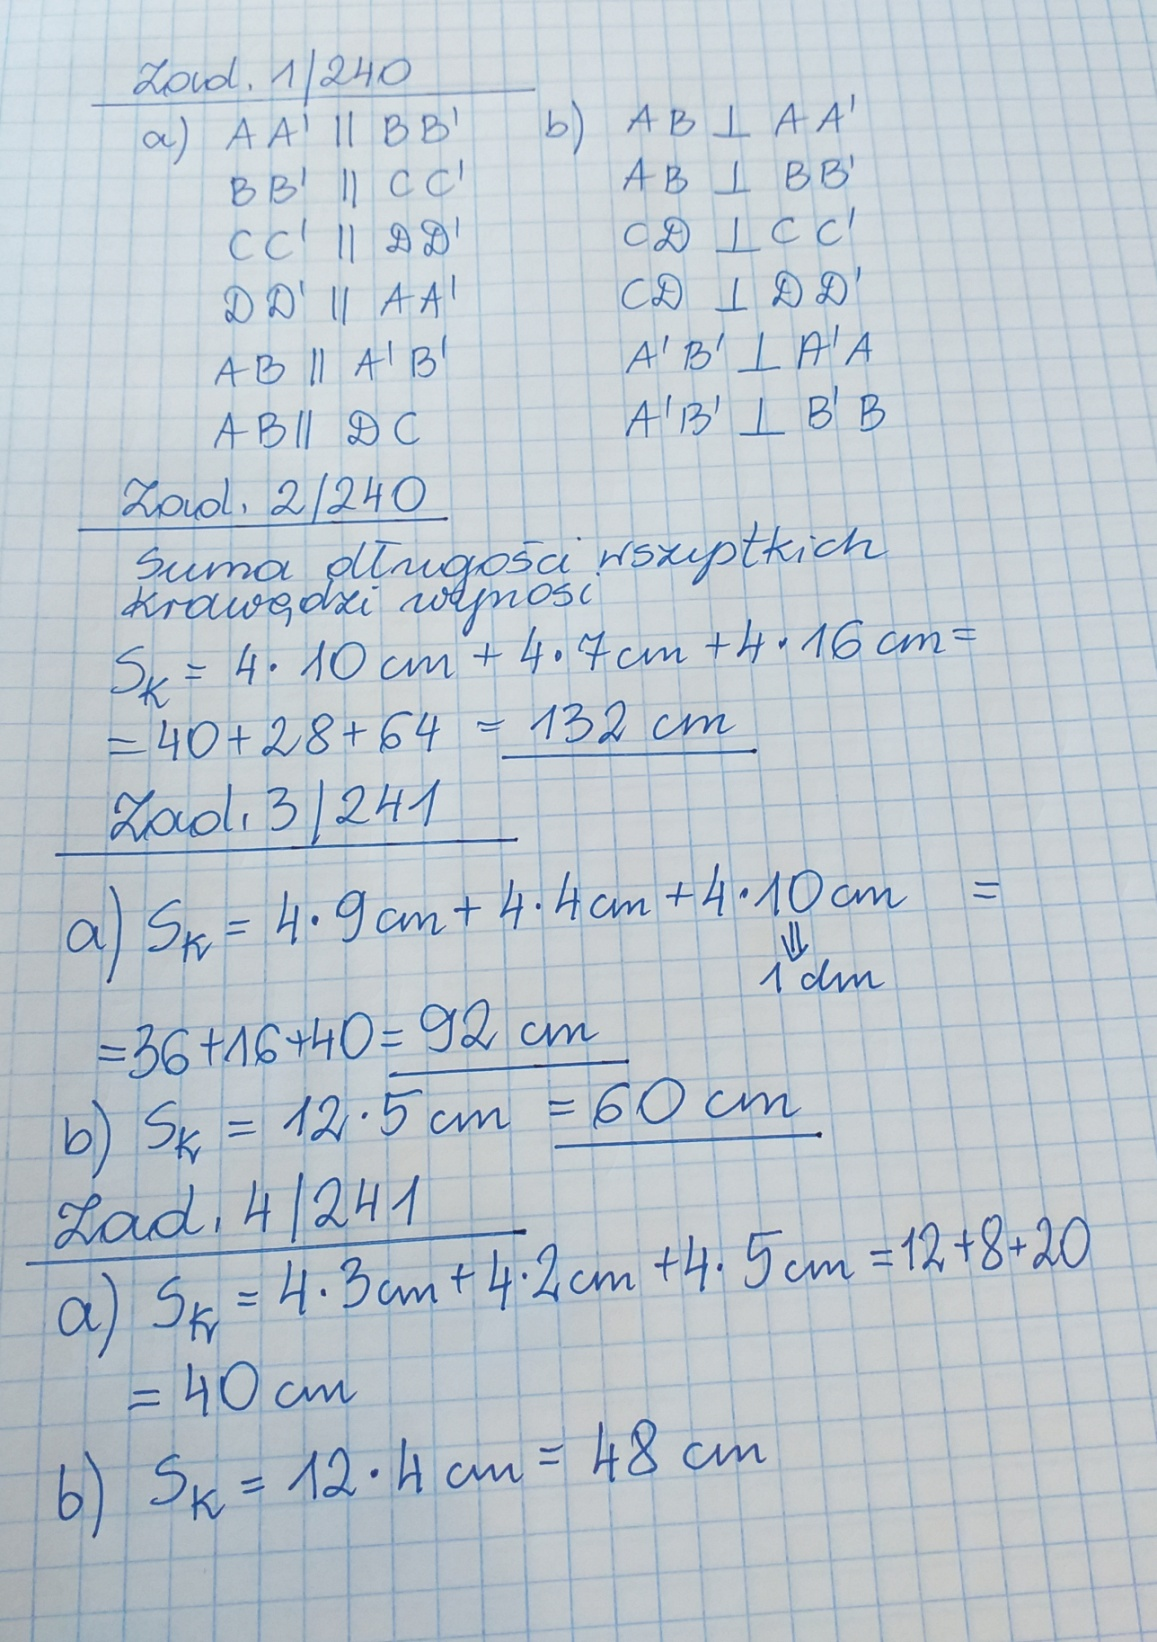 Zad. 1/240
a) AA' || BB'
BB' || CC'
CC' || DD'
DD' || AA'
AB || A'B'
AB || DC
b) AB ⊥ AA'
AB ⊥ BB'
CD ⊥ CC'
CD ⊥ DD'
A'B' ⊥ A'A
A'B' ⊥ B'B
Zad. 2/240
Suma długości wszystkich
krawędzi wynosi
Sk = 4·10 cm + 4·7cm + 4·16 cm =
= 40+28+64 = 132 cm
Zad. 3/241
a) Sk = 4·9cm + 4·4cm + 4·10cm =
⇓
1 dm
= 36+16+40 = 92 cm
b) Sk = 12·5 cm = 60 cm
Zad. 4/241
a) Sk = 4·3cm + 4·2cm + 4·5cm = 12+8+20
= 40 cm
b) Sk = 12·4 cm = 48 cm